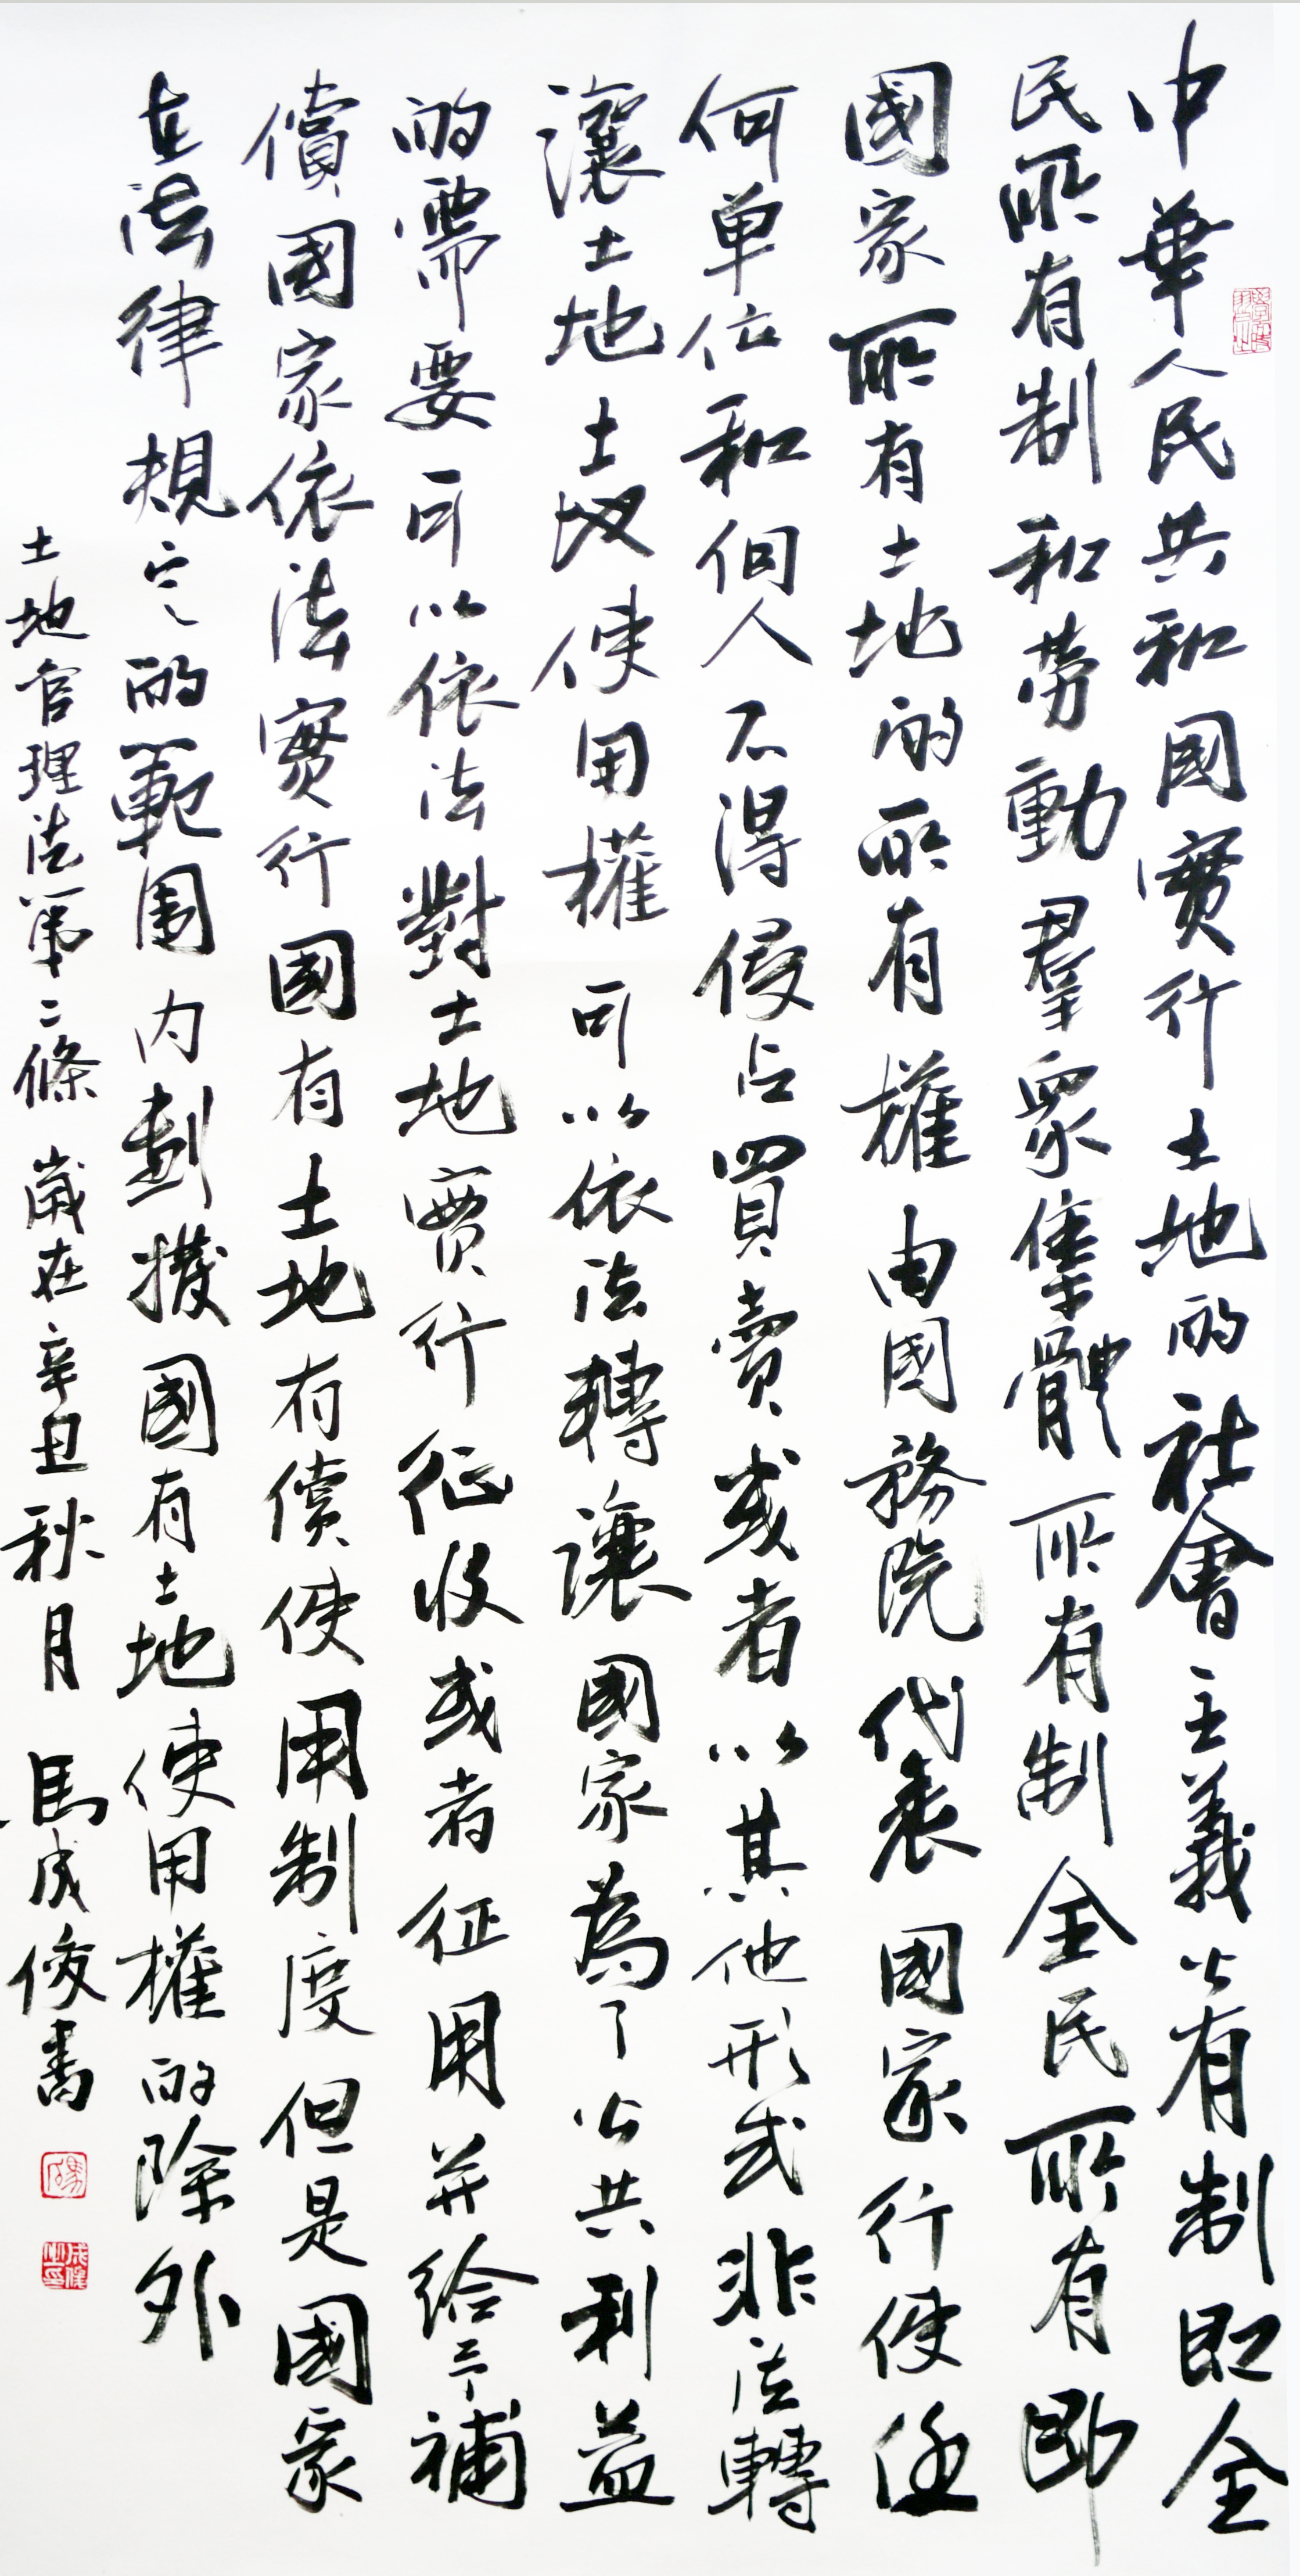 中華人民共和國實行土地的社會主義公有制即全
民所有制和勞動羣眾集體所有制全民所有即
國家所有土地的所有權由國務院代表國家行使任
何单位和個人不得侵占買賣或者以其他形式非法轉
讓土地土地使用權可以依法轉讓國家為了公共利益
的需要可以依法對土地實行征收或者征用并給予補
償國家依法實行國有土地有償使用制度但是國家
在法律規定的範围内劃撥國有土地使用權的除外
土地官理法第二條 歲在辛丑秋月 馬成俊書